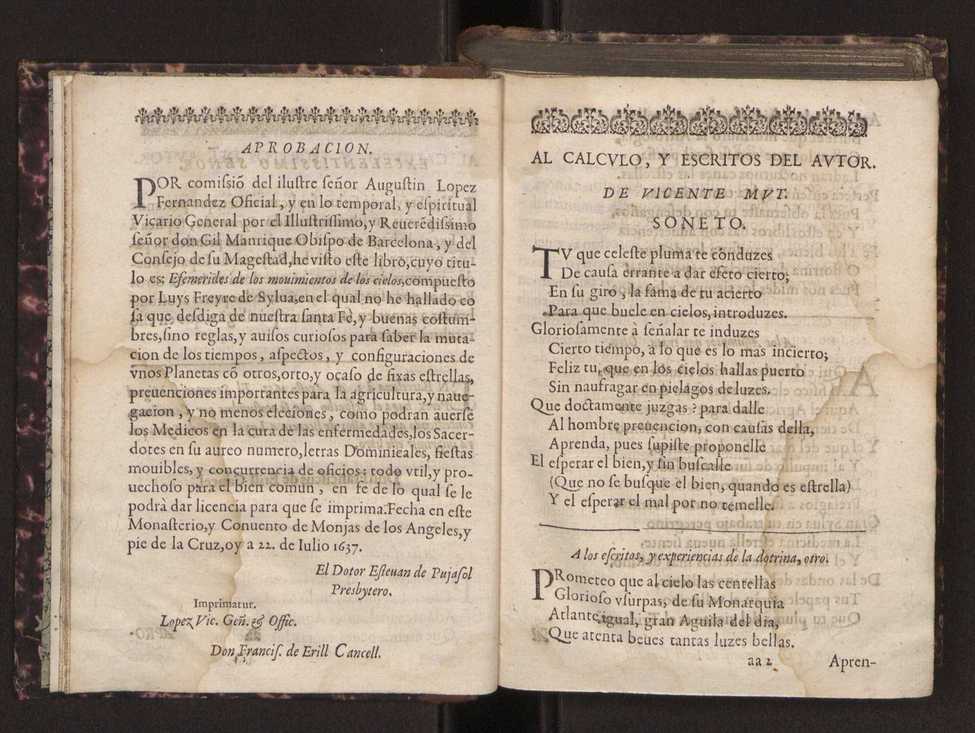 APROBACION.
POR comissiõ del ilustre señor Augustin Lopez
Fernandez Oficial, y en lo temporal, y espiritual
Vicario General por el Illustrissimo, y Reuerẽdissimo
señor don Gil Manrique Obispo de Barcelona, y del
Consejo de su Magestad, he visto este libro, cuyo titu-
lo es: Efemerides de los mouimientos de los cielos, compuesto
por Luys Freyre de Sylua, en el qual no he hallado co
sa que desdiga de nuestra santa Fè, y buenas costum-
bres, sino reglas, y auisos curiosos para saber la muta-
cion de los tiempos, aspectos, y configuraciones de
vnos Planetas cõ otros, orto, y ocaso de fixas estrellas,
preuenciones importantes para la agricultura, y naue-
gacion, y no menos elecciones, como podran auerse
los Medicos en la cura de las enfermedades, los Sacer-
dotes en su aureo numero, letras Dominicales, fiestas
mouibles, y concurrencia de oficios: todo vtil, y pro-
uechoso para el bien comun, en fe de lo qual se le
podrà dar licencia para que se imprima. Fecha en este
Monasterio, y Conuento de Monjas de los Angeles, y
pie de la Cruz, oy a 22. de Iulio 1637.
El Dotor Esteuan de Pujasol
Presbytero.
Imprimatur.
Lopez Vic. Geñ. & Offic.
Don Francis. de Erill Cancell.
AL CALCVLO, Y ESCRITOS DEL AVTOR.
DE VICENTE MVT.
SONETO.
TV que celeste pluma te cõnduzes
De causa errante a dar efeto cierto;
En su giro, la fama de tu acierto
Para que buele en cielos, introduzes.
Gloriosamente à señalar te induzes
Cierto tiempo, a lo que es lo mas incierto;
Feliz tu, que en los cielos hallas puerto
Sin naufragar en pielagos de luzes.
Que doctamente juzgas? para dalle
Al hombre preuencion, con causas della,
Aprenda, pues supiste proponelle
El esperar el bien, y sin buscalle
(Que no se busque el bien, quando es estrella)
Y el esperar el mal por no temelle.
A los escritos, y experiencias de la dotrina, otro.
PRometeo que al cielo las centellas
Glorioso vsurpas, de su Monarquia
Atlante igual, gran Aguila del dia,
Que atenta beues tantas luzes bellas.
aa 2 Apren-